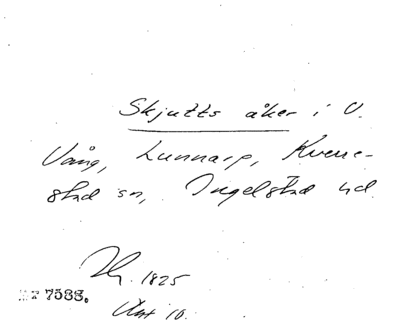 Skjutts åker i V.
Vång, Lunnarp, Kverre-
stad sn, Ingelstad hd.
1825
7588.